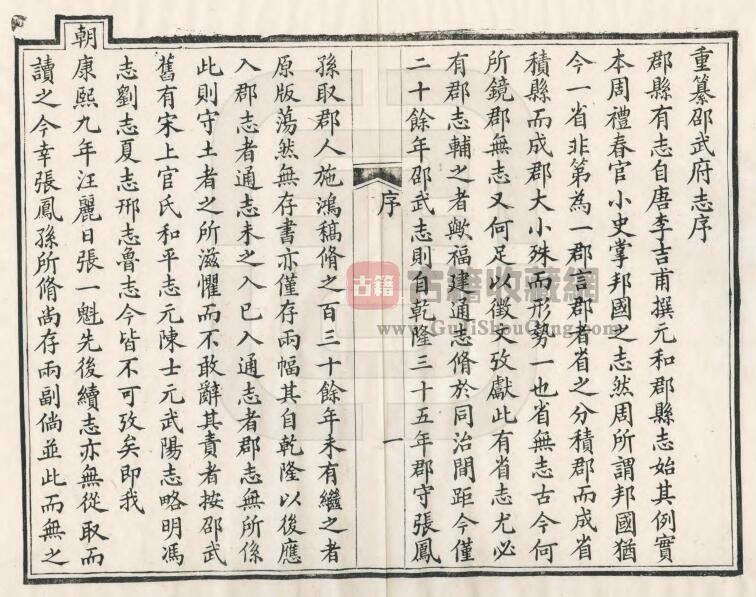 重纂邵武府志序
郡縣有志自唐李吉甫撰元和郡縣志始其例實
本周禮春官小史掌邦國之志然周所謂邦國猶
今一省非第為一郡言郡者省之分積郡而成省
積縣而成郡大小殊而形勢一也省無志古今何
所鏡郡無志又何足以徵文攷獻此有省志尤必
有郡志輔之者歟福建通志脩於同治間距今僅
二十餘年邵武志則自乾隆三十五年郡守張鳳
序
一
孫取郡人施鴻稿脩之百三十餘年未有繼之者
原版蕩然無存書亦僅存兩幅其自乾隆以後應
入郡志者通志未之入已入通志者郡志無所係
此則守土者之所滋懼而不敢辭其責者按邵武
舊有宋上官氏和平志元陳士元武陽志略明馮
志劉志夏志邢志魯志今皆不可攷矣即我
朝康熙九年汪麗日張一魁先後續志亦無從取而
讀之今幸張鳳孫所脩尚存兩副倘並此而無之
古籍 古籍收藏網
www.GuJiShouCang.com